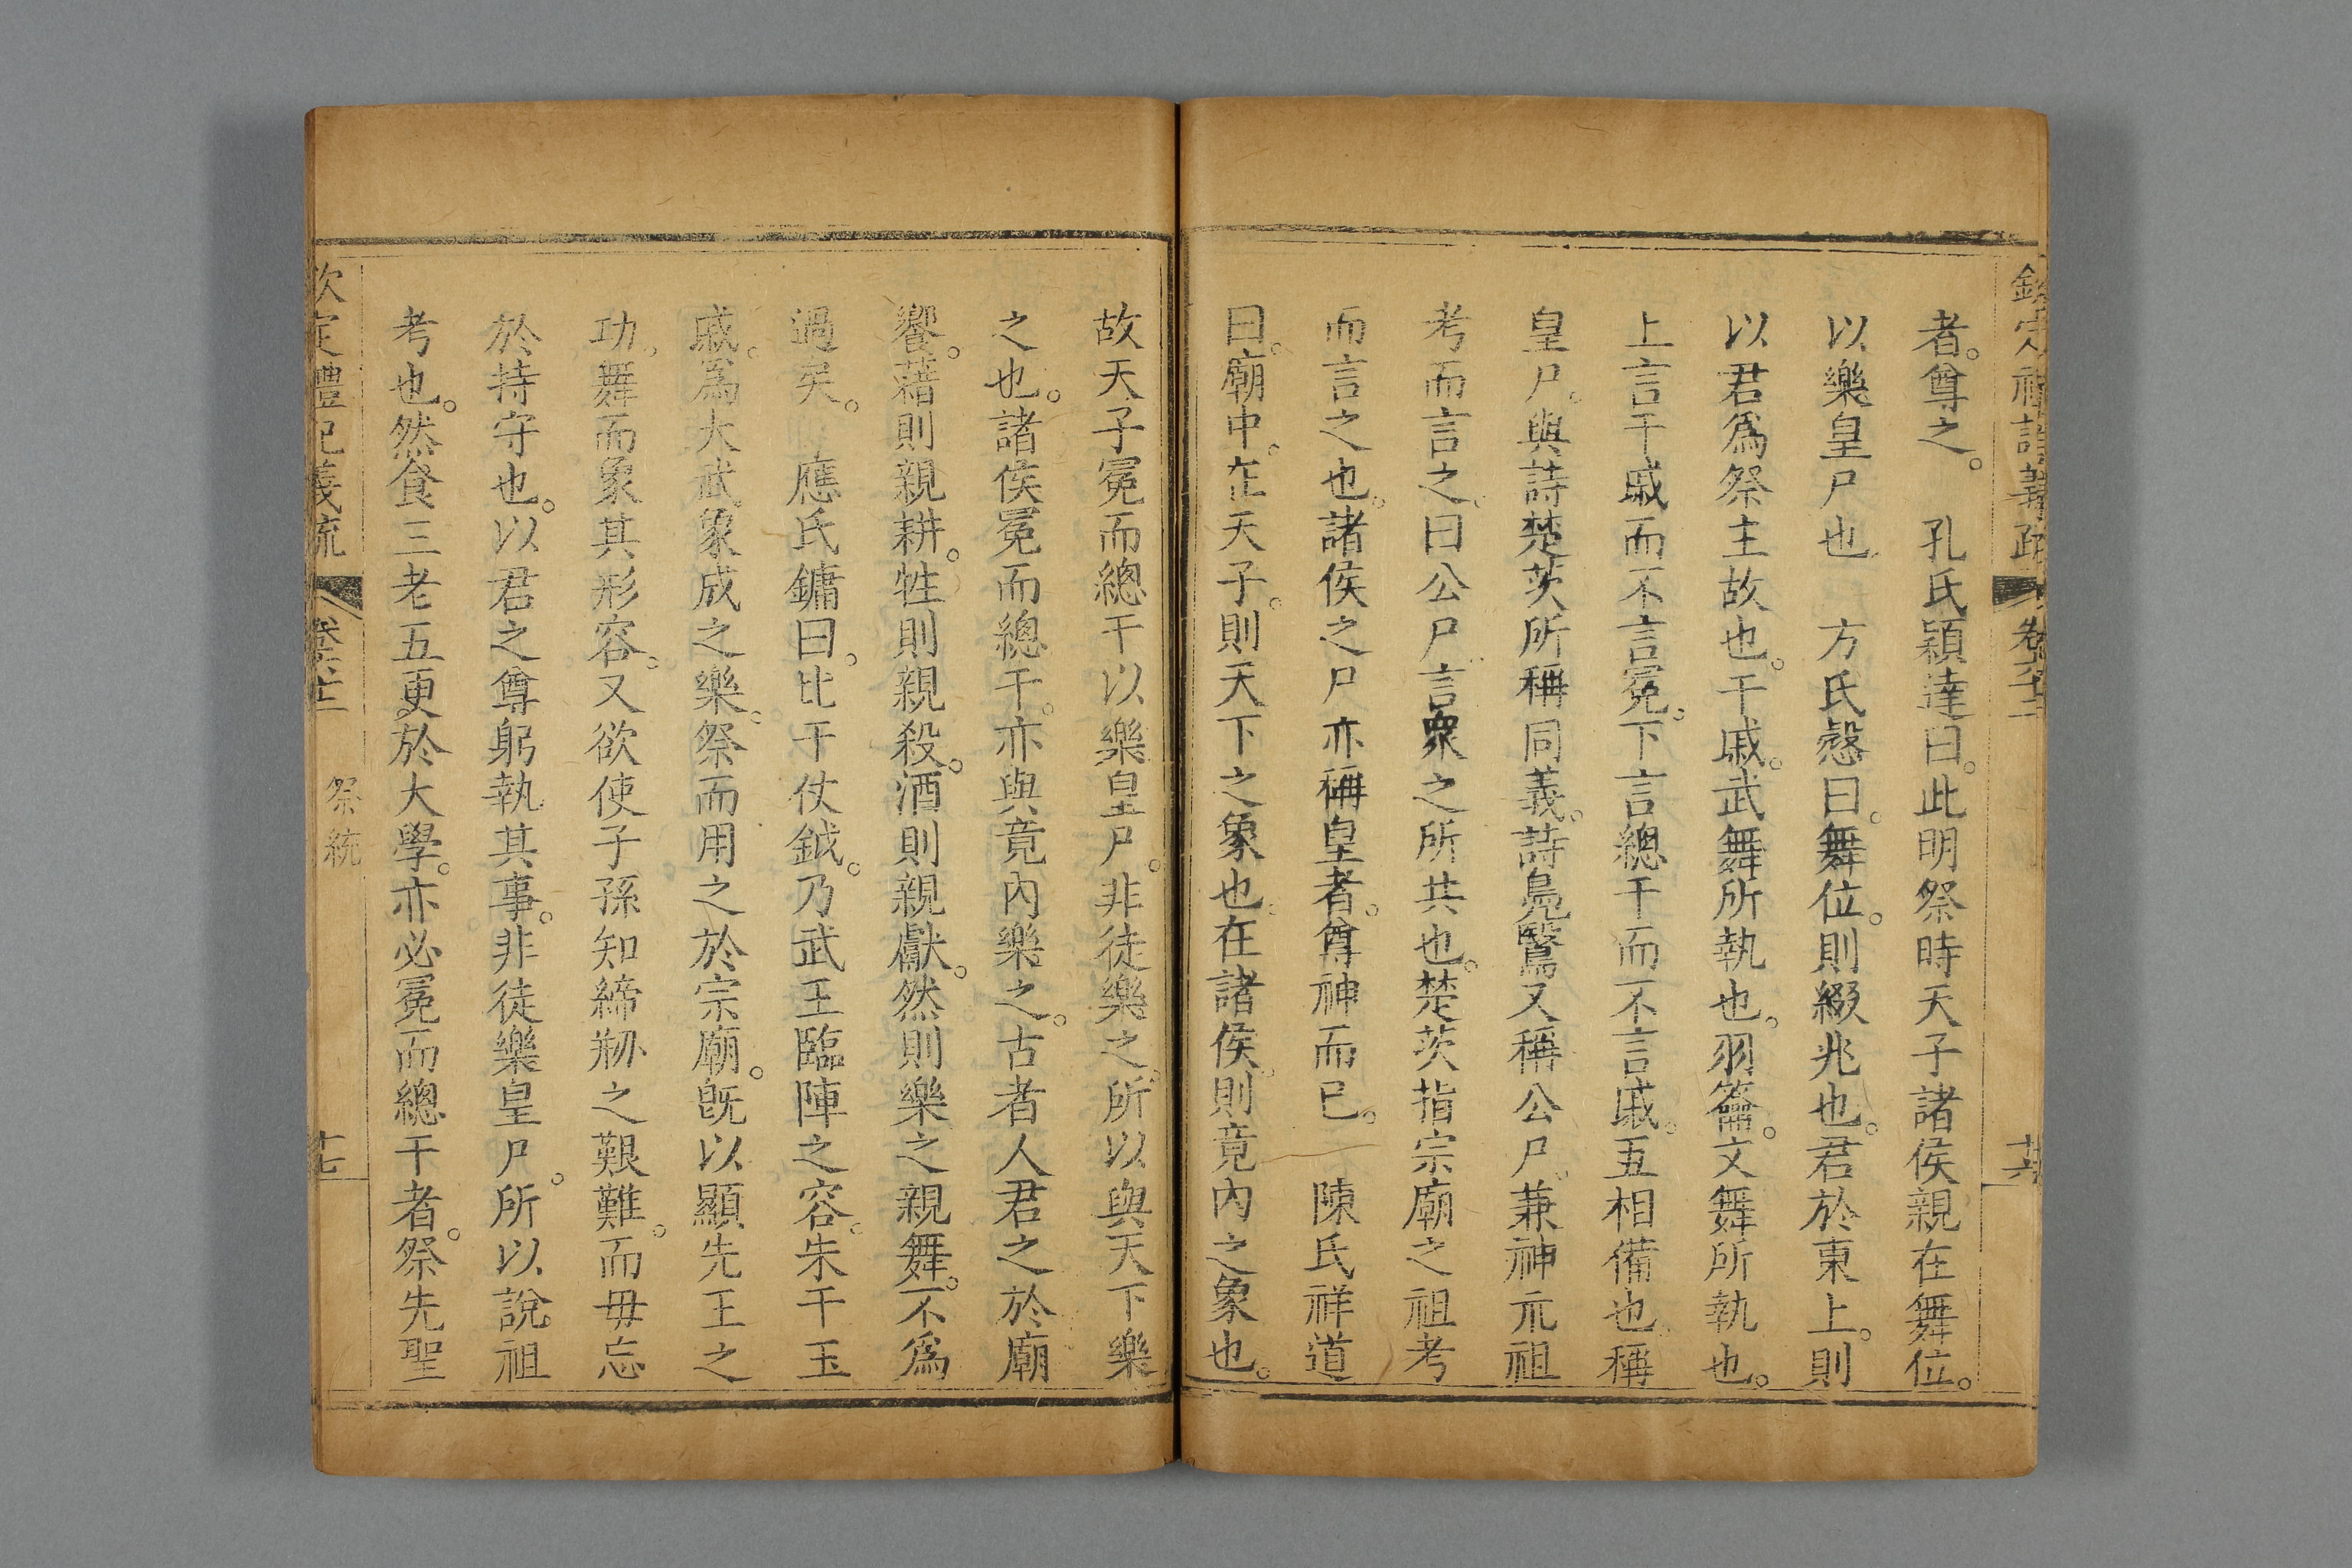 欽定禮記義疏 卷六十二 十六
者。尊之。 孔氏穎達曰。此明祭時天子諸侯親在舞位。
以樂皇尸也 方氏慤曰。舞位。則綴兆也。君於東上。則
以君爲祭主故也。干戚。武舞所執也。羽籥。文舞所執也。
上言干戚而不言冕。下言總干而不言戚。互相備也。稱
皇尸。與詩楚茨所稱同義。詩鳧鷖又稱公尸。兼神示祖
考而言之。曰公尸。言衆之所共也。楚茨指宗廟之祖考
而言之也。諸侯之尸亦稱皇者。尊神而已。 陳氏祥道
曰。廟中。在天子。則天下之象也。在諸侯。則竟內之象也。
故天子冕而總干以樂皇尸。非徒樂之。所以與天下樂
之也。諸侯冕而總干。亦與竟內樂之。古者人君之於廟
饗。藉則親耕。牲則親殺。酒則親獻。然則樂之親舞。不爲
過矣。 應氏鏞曰。比干仗鉞。乃武王臨陣之容。朱干玉
戚。爲大武。象成之樂。祭而用之於宗廟。旣以顯先王之
功。舞而象其形容。又欲使子孫知締剏之艱難。而毋忘
於持守也。以君之尊躬執其事。非徒樂皇尸。所以說祖
考也。然食三老五更於大學。亦必冕而總干者。祭先聖
欽定禮記義疏 卷六十二 祭統 十七